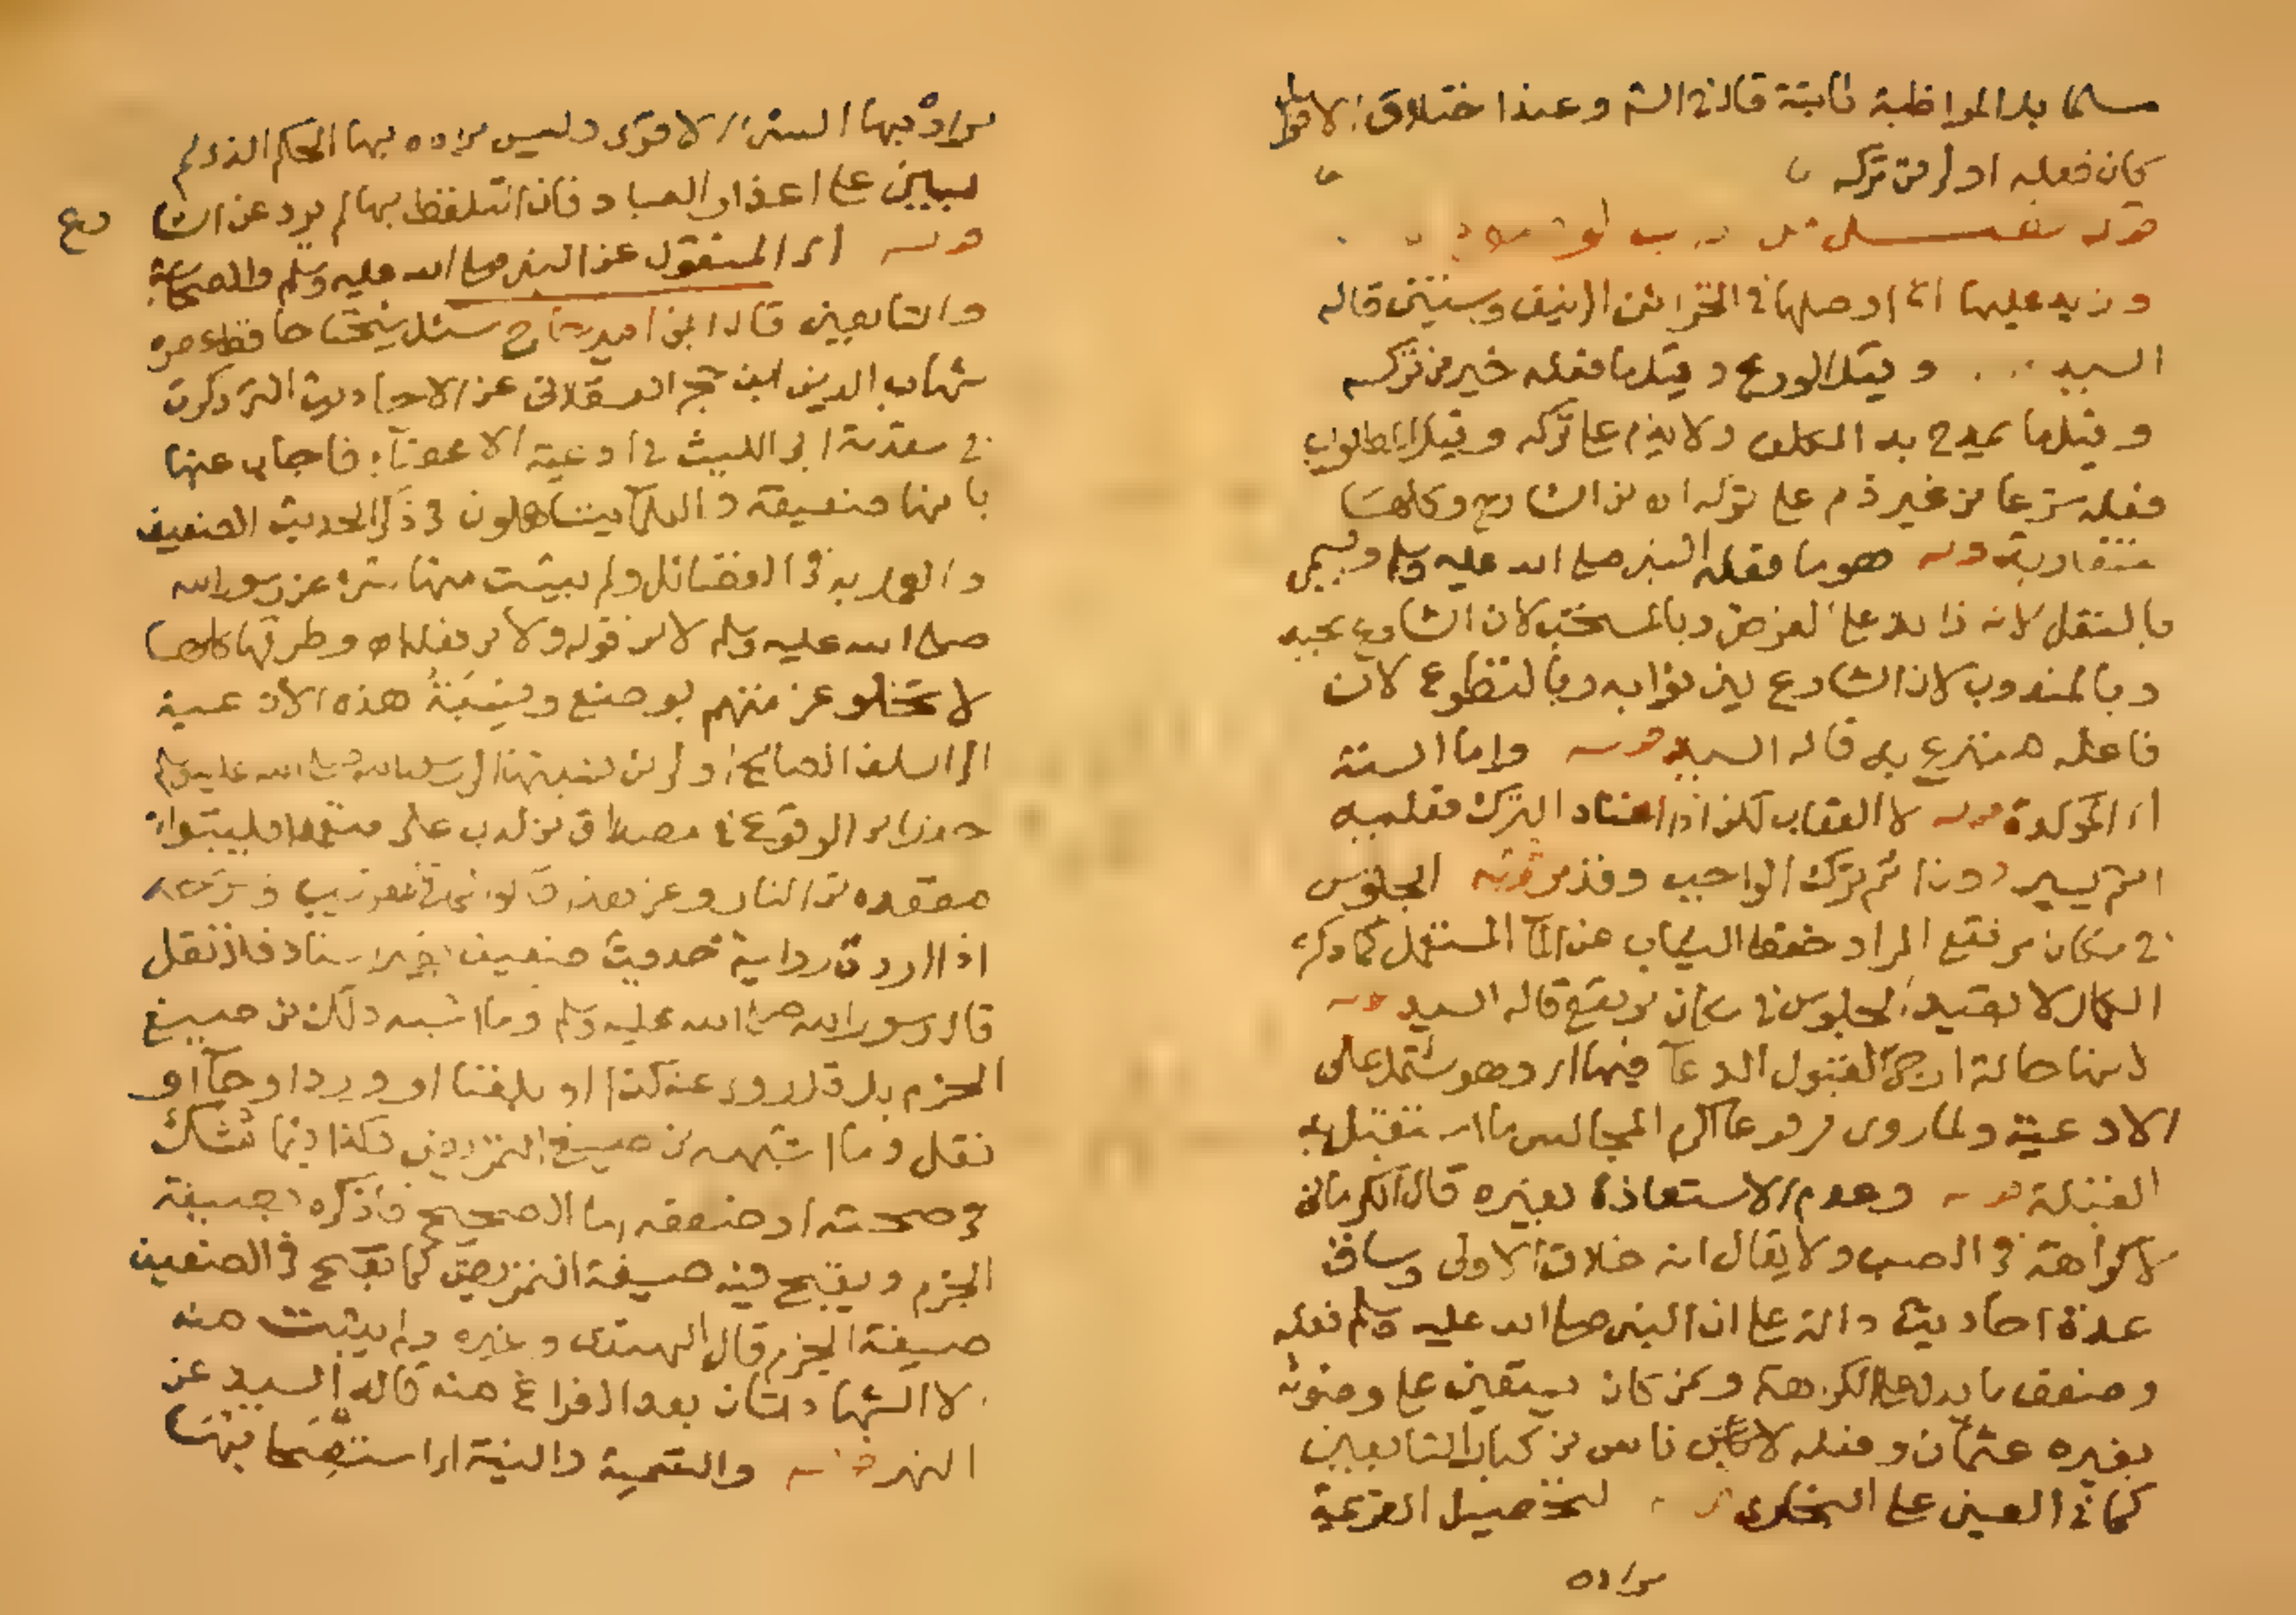 مسلما بل المواظبة ثابتة قال في الشر وعند اختلاف الاقوال
كان فعله اولى من تركه
قوله فصل من
وزيد عليها اوصلها في الخزائن الى نيف وستين قاله
السيد وقيل الورع وقيل ما فعله خير من تركه
وقيل ما يمدح به المكلف ولا يذم على تركه وقيل المطلوب
فعله شرعا من غير ذم على تركه اه من الشارح وكلها
متقاربة قوله هو ما فعله النبي صلى الله عليه وسلم ويسمى
بالنفل لانه زائد على الفرض وبالمستحب لان الشارع يحبه
وبالمندوب لان الشارع بين ثوابه وبالتطوع لان
فاعله متبرع به قاله السيد قوله واما السنة
اى المؤكدة قوله لا العقاب لكن اذا اعتاد الترك فعليه
اثم يسير دون اثم ترك الواجب وقد مر قوله الجلوس
في مكان مرتفع المراد حفظ الثياب عن الماء المستعمل كما ذكره
الكمال لا بقيد الجلوس في مكان مرتفع قاله السيد قوله
لانها حالة ارجى لقبول الدعآ فيها اى وهو مشتمل على
الادعية ولما روى مرفوعا اكرم المجالس ما استقبل به
القبلة قوله وعدم الاستعاذة بغيره قال الكرماني
لا كراهة في الصب ولا يقال انه خلاف الاولى وساق
عدة احاديث دالة على ان النبي صلى الله عليه وسلم فعله
وضعف ما يدل على الكراهة وممن كان يستعين على وضوئه
بغيره عثمان وفعله ناس من كبار التابعين
كما في العيني على البخارى قوله لتحصيل العزيمة
مراده
مراده بها السنن الاقوى وليس مراده بها الحكم الذى لم
يبين على اعذار العباد فان التلفظ بها لم يرد عن الشا رع
قوله اى المنقول عن النبي صلى الله عليه وسلم والصحابة
والتابعين قال ابن امير حاج سئل شيخنا حافظ عصره
شهاب الدين ابن حجر العسقلاني عن الاحاديث التي ذكرت
في مقدمة ابي الليث في ادعية الاعضآء فاجاب عنها
بانها ضعيفة والعلمآ يتساهلون في ذكر الحديث الضعيف
والعمل به في الفضائل ولم يثبت منها شئ عن رسول الله
صلى الله عليه وسلم لا من قوله ولا من فعله اه وطرقها كلها
لا تخلو عن متهم بوضع ونسبة هذه الادعية
الى السلف الصالح اولى من نسبتها الى رسول الله صلى الله عليه وسلم
حذرا من الوقوع في مصداق من كذب على متعمدا فليتبوا
مقعده من النار وعن هذا قالوا
اذا اردت رواية حديث ضعيف بغير اسناد فلا تقل
قال رسول الله صلى الله عليه وسلم وما اشبه ذلك من صيغ
الجزم بل قل روى عنه كذا او بلغنا او ورد او جآ او
نقل وما اشبهه من صيغ التمريض وكذا فيما تشك
في صحته او ضعفه اما الصحيح فاذكره بصيغة
الجزم ويقبح فيه صيغة التمريض كما يقبح في الضعيف
صيغة الجزم قال الهندى وغيره ولم يثبت منه
الا الشهادتان بعد الفراغ منه قاله السيد عن
النهر قوله والتسمية والنية اى استصحابها